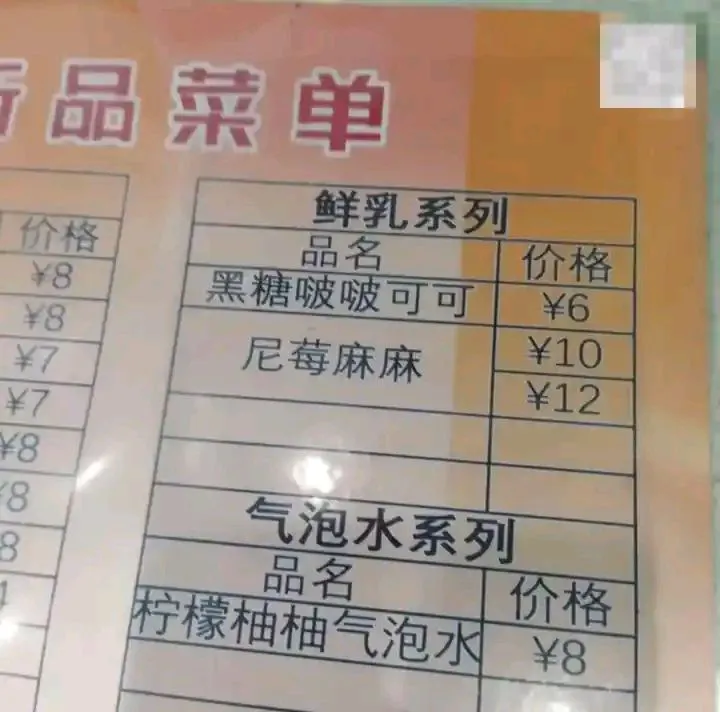 新品菜单
价格
¥8
¥8
¥7
¥7
¥8
¥8
8
鲜乳系列
品名 价格
黑糖啵啵可可 ¥6
尼莓麻麻 ¥10
¥12
气泡水系列
品名 价格
柠檬柚柚气泡水 ¥8